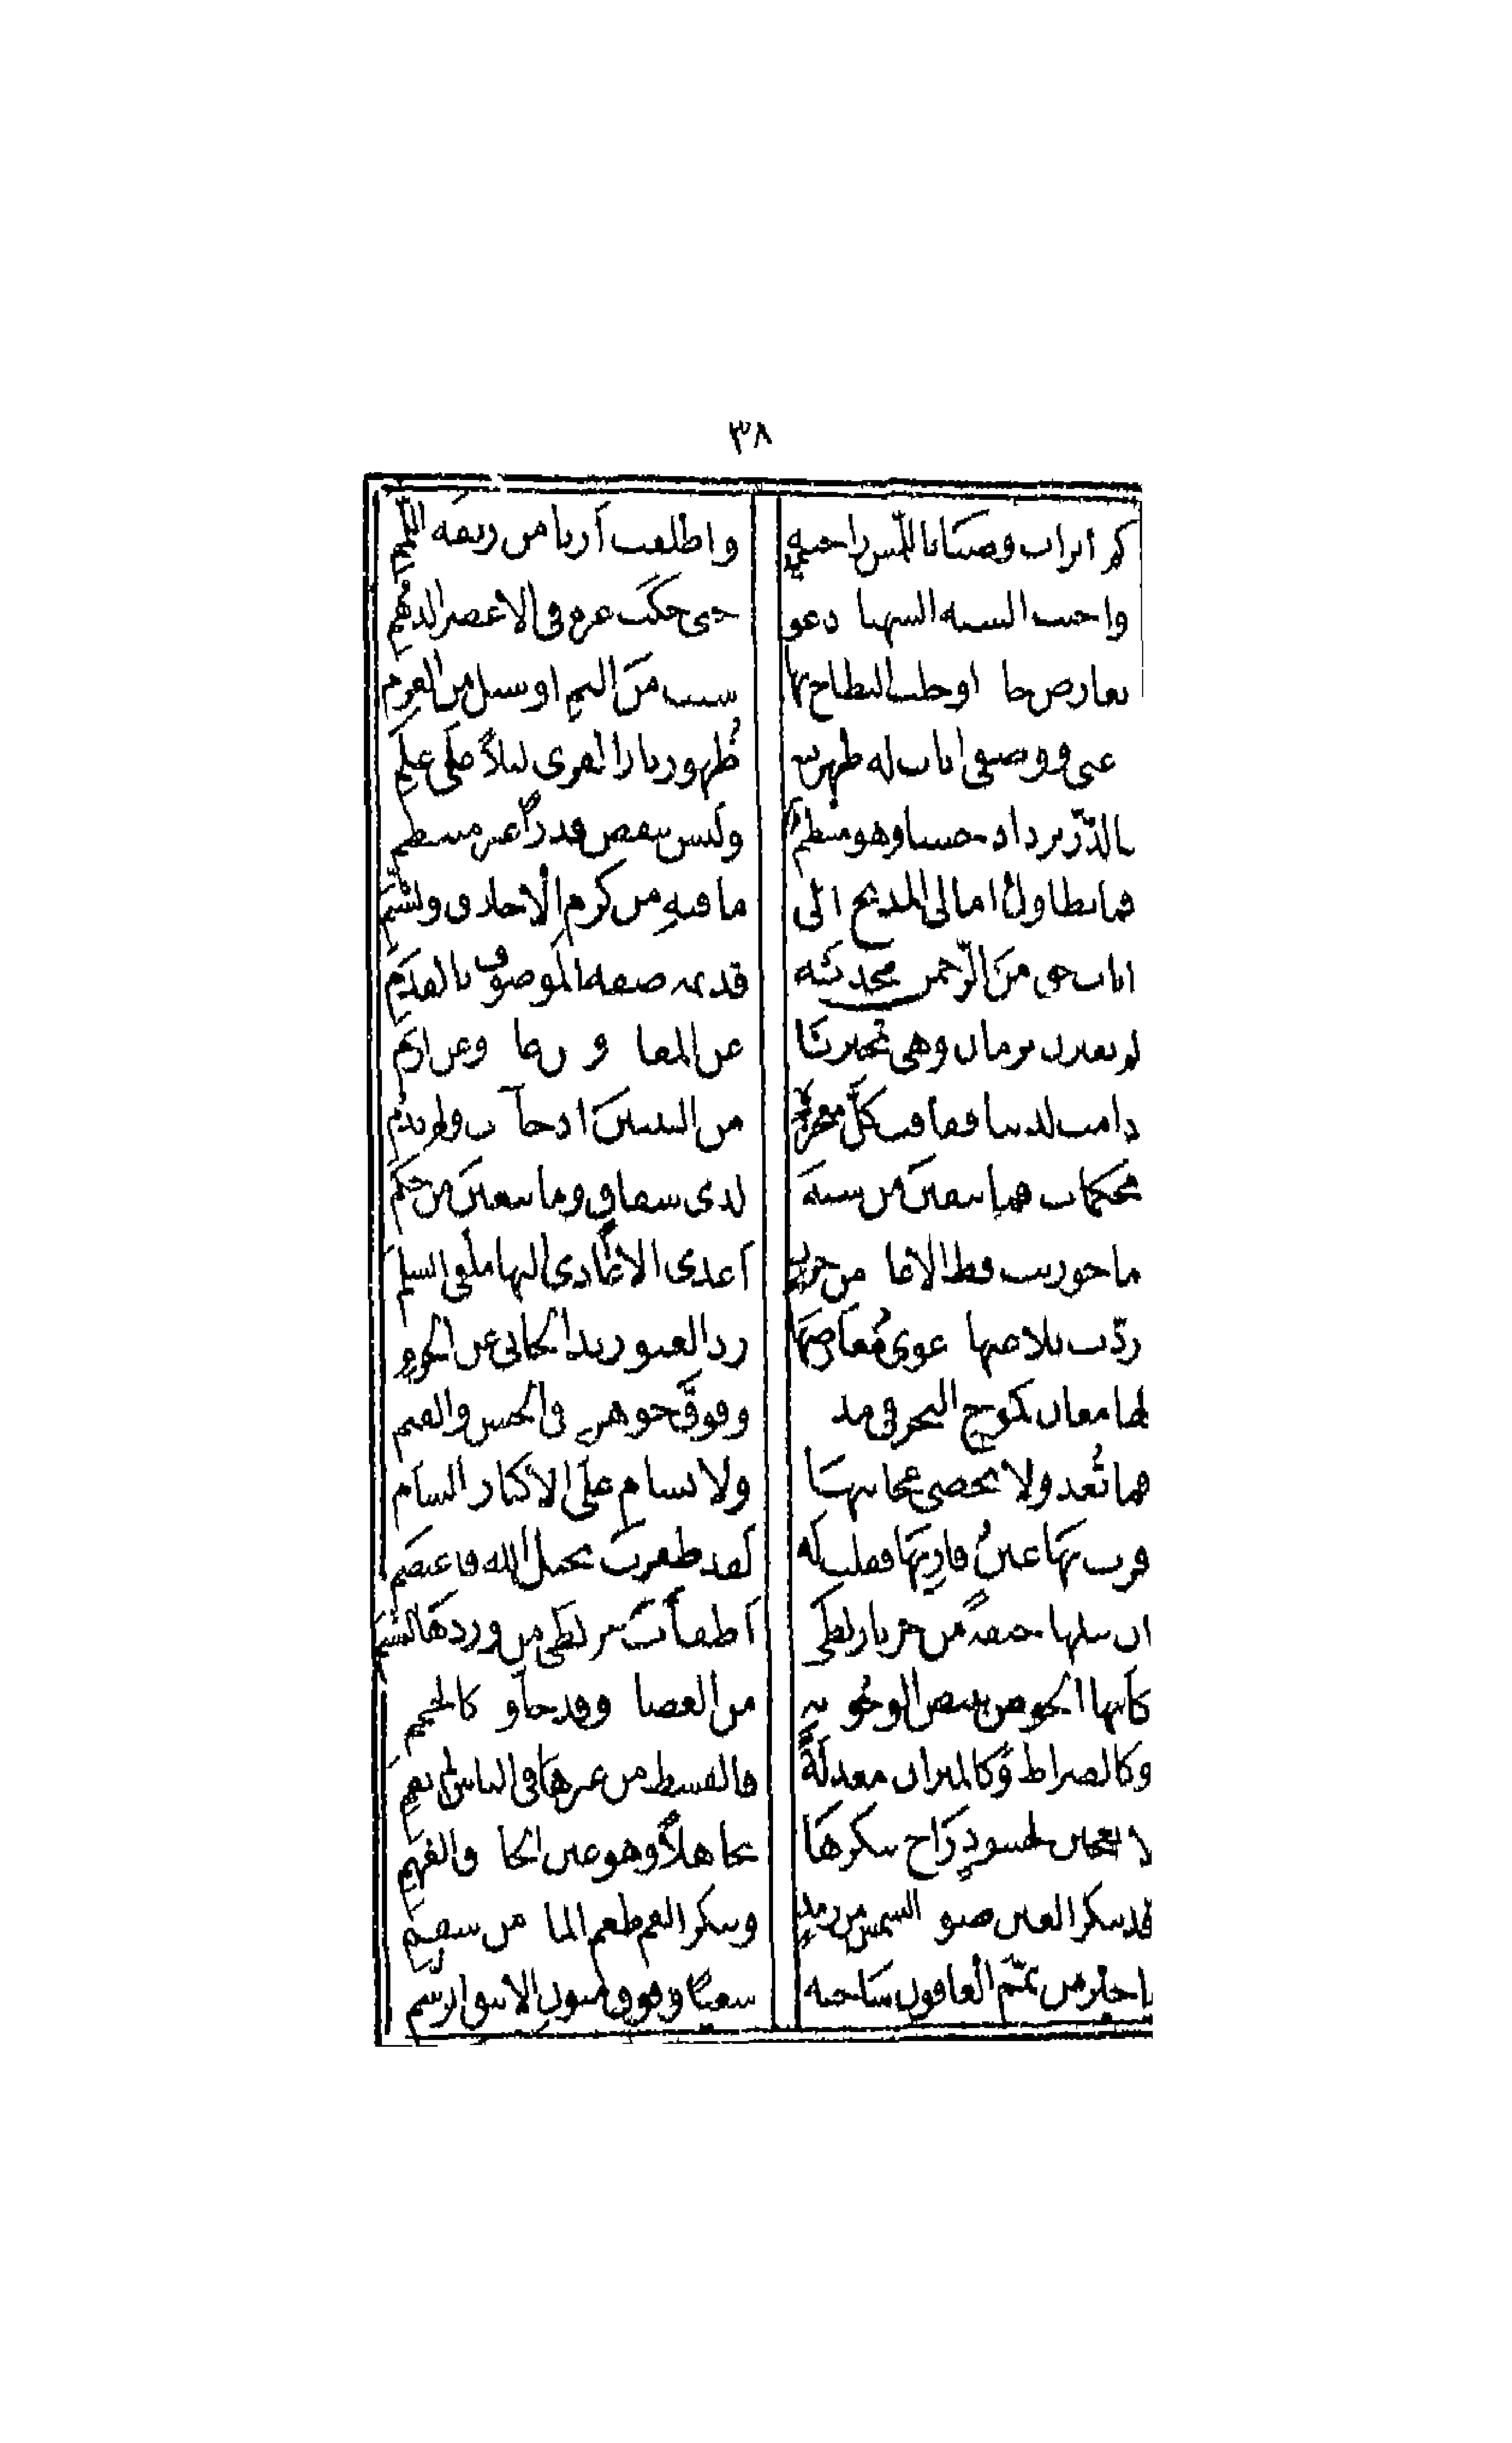 ٣٨
كم ابرات وصبا باللمس راحته واطلقت أربا من ربقه اللمم
واحيت السنه الشهبا دعو حتى حكت غره في الاعصر الدهم
بعارض جا اوخلت البطاح بها سيب من اليم اوسيل من العرم
عنى ووصفى ايات له ظهرت ظهور نار القرى ليلاً على علم
فالدّرّ يزداد حسنا وهو منتظم وليس ينقص قدراً غير منتظم
فما تطاول امالى المديح الى ما فيهِ من كرم الاخلاق والشيم
ايات حق من الرّحمن محدثه قديمه صفه الموصوف بالقدم
لم تقترن بزمان وهى تخبرنا عن المعا و عن عا وعن ارم
دامت لدينا ففاقت كلّ معجزة من النبيين اذ جآت ولم تدم
محكمات فما يبقين من شبه لدى شقاق وما يبغين من حكم
ما حوربت قط الا عا من حرب أعدى الاعادى اليها ملقى السلم
ردّت بلاغتها عوى مُعارضها رد الغيور يد الجانى عن الحرم
لها معان كموج البحر فى مد وفوق جوهره فى الحسن والقيم
فما تُعد ولا تحصى عجائبها ولا تسام على الاكثار بالسأم
قرت بها عينُ قاريها فقلت له لقد ظفرت بحبل الله فاعتصم
ان تتلها خيفةً من حر نار لظى أطفأت حر لظى من وردها الشبم
كأنها الحوض تبيض الوجوه به من العصا وقد جاو كالحمم
وكالصراط وكالميزان معدلةً فالقسط من غيرها فى الناس لم يقم
لا تعجبن لحسودٍ رَاح ينكرها تجاهلاً وهو عين الحا ق الفهم
قد تنكر العين ضو الشمس من رمدٍ وينكر الفم طعم الما من سقم
يا خير من يمّم العافون ساحته سعيًا وفوق متون الاينق الرسم